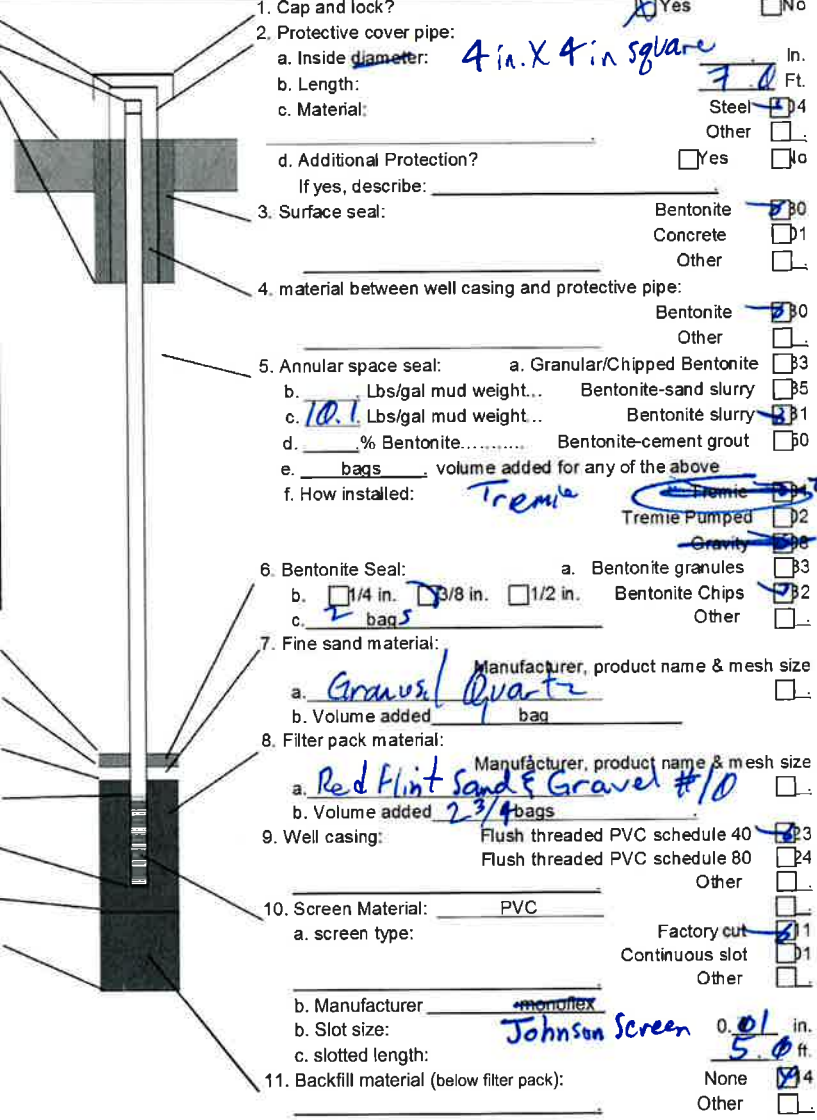 1. Cap and lock? Yes No
2. Protective cover pipe:
a. Inside diameter: 4 in. X 4 in square In.
b. Length: 7.0 Ft.
c. Material: Steel 04
Other
d. Additional Protection? Yes No
If yes, describe:
3. Surface seal: Bentonite 30
Concrete 01
Other
4. material between well casing and protective pipe:
Bentonite 30
Other
5. Annular space seal: a. Granular/Chipped Bentonite 33
b. Lbs/gal mud weight... Bentonite-sand slurry 35
c. 10.1 Lbs/gal mud weight... Bentonite slurry 31
d. .% Bentonite........... Bentonite-cement grout 50
e. bags . volume added for any of the above
f. How installed: Tremie Tremie
Tremie Pumped 02
Gravity 08
6. Bentonite Seal: a. Bentonite granules 33
b. 1/4 in. 3/8 in. 1/2 in. Bentonite Chips 32
c. 2 bags Other
7. Fine sand material:
Manufacturer, product name & mesh size
a. Quartz
b. Volume added 1 bag
8. Filter pack material:
Manufacturer, product name & mesh size
a. Red Flint Sand & Gravel #10
b. Volume added 2 3/4 bags
9. Well casing: Flush threaded PVC schedule 40 23
Flush threaded PVC schedule 80 24
Other
10. Screen Material: PVC
a. screen type: Factory cut 11
Continuous slot 01
Other
b. Manufacturer monoflex
b. Slot size: Johnson Screen 0.01 in.
c. slotted length: 5.0 ft.
11. Backfill material (below filter pack): None 14
Other